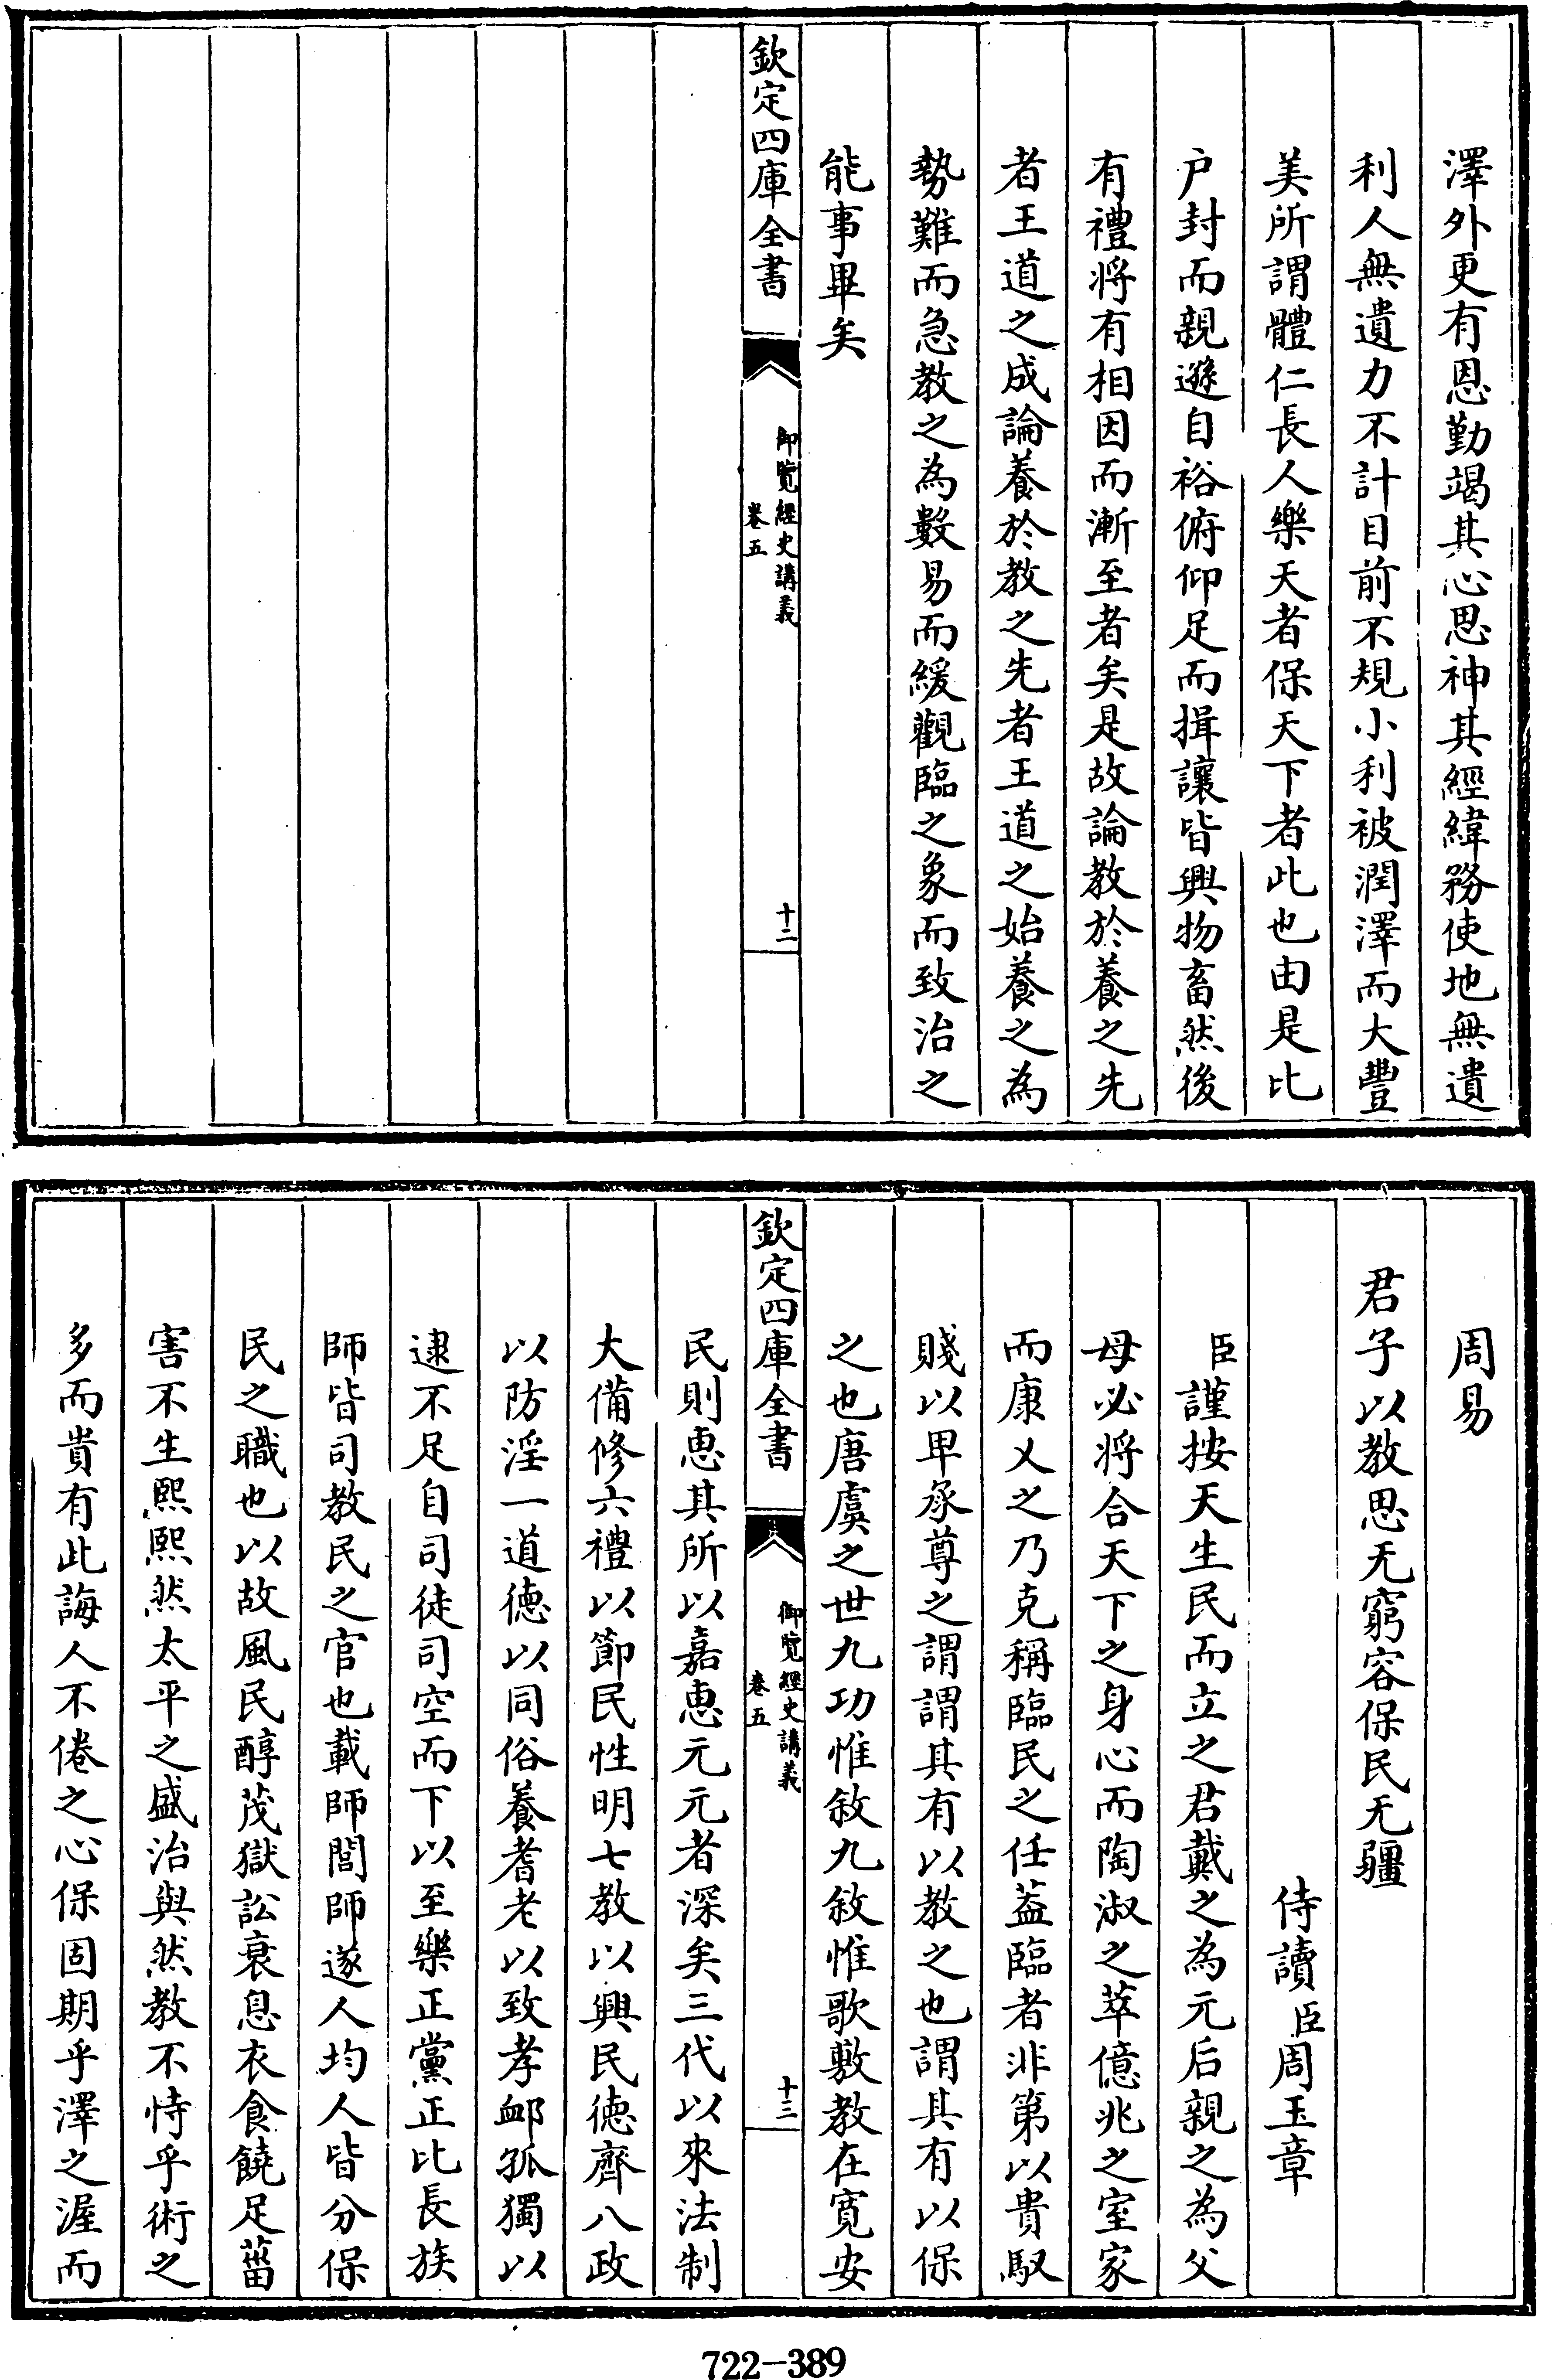 澤外更有恩勤竭其心思神其經緯務使地無遺
利人無遺力不計目前不規小利被潤澤而大豐
美所謂體仁長人樂天者保天下者此也由是比
户封而親遜自裕俯仰足而揖讓皆興物畜然後
有禮將有相因而漸至者矣是故論教於養之先
者王道之成論養於教之先者王道之始養之為
勢難而急教之為數易而緩觀臨之象而致治之
能事畢矣
欽定四庫全書
御覽經史講義
卷五
十二
周易
君子以教思无窮容保民无疆
侍讀臣周玉章
臣謹按天生民而立之君戴之為元后親之為父
母必將合天下之身心而陶淑之萃億兆之室家
而康乂之乃克稱臨民之任葢臨者非第以貴馭
賤以卑承尊之謂謂其有以教之也謂其有以保
之也唐虞之世九功惟敘九敘惟歌敷教在寬安
欽定四庫全書
御覽經史講義
卷五
十三
民則惠其所以嘉惠元元者深矣三代以來法制
大備修六禮以節民性明七教以興民德齊八政
以防淫一道德以同俗養耆老以致孝卹孤獨以
逮不足自司徒司空而下以至樂正黨正比長族
師皆司教民之官也載師閭師遂人均人皆分保
民之職也以故風民醇茂獄訟衰息衣食饒足菑
害不生熙熙然太平之盛治與然教不恃乎術之
多而貴有此誨人不倦之心保固期乎澤之渥而
722-389